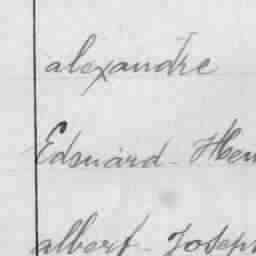 alexandre
Edouard - Hen
albert - Joseph